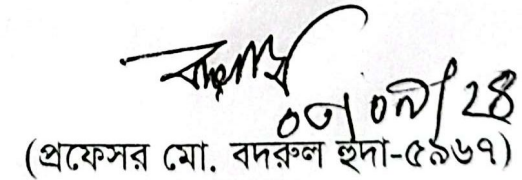 ০৩/০৯/২৪
(প্রফেসর মো. বদরুল হুদা-৫৯৬৭)